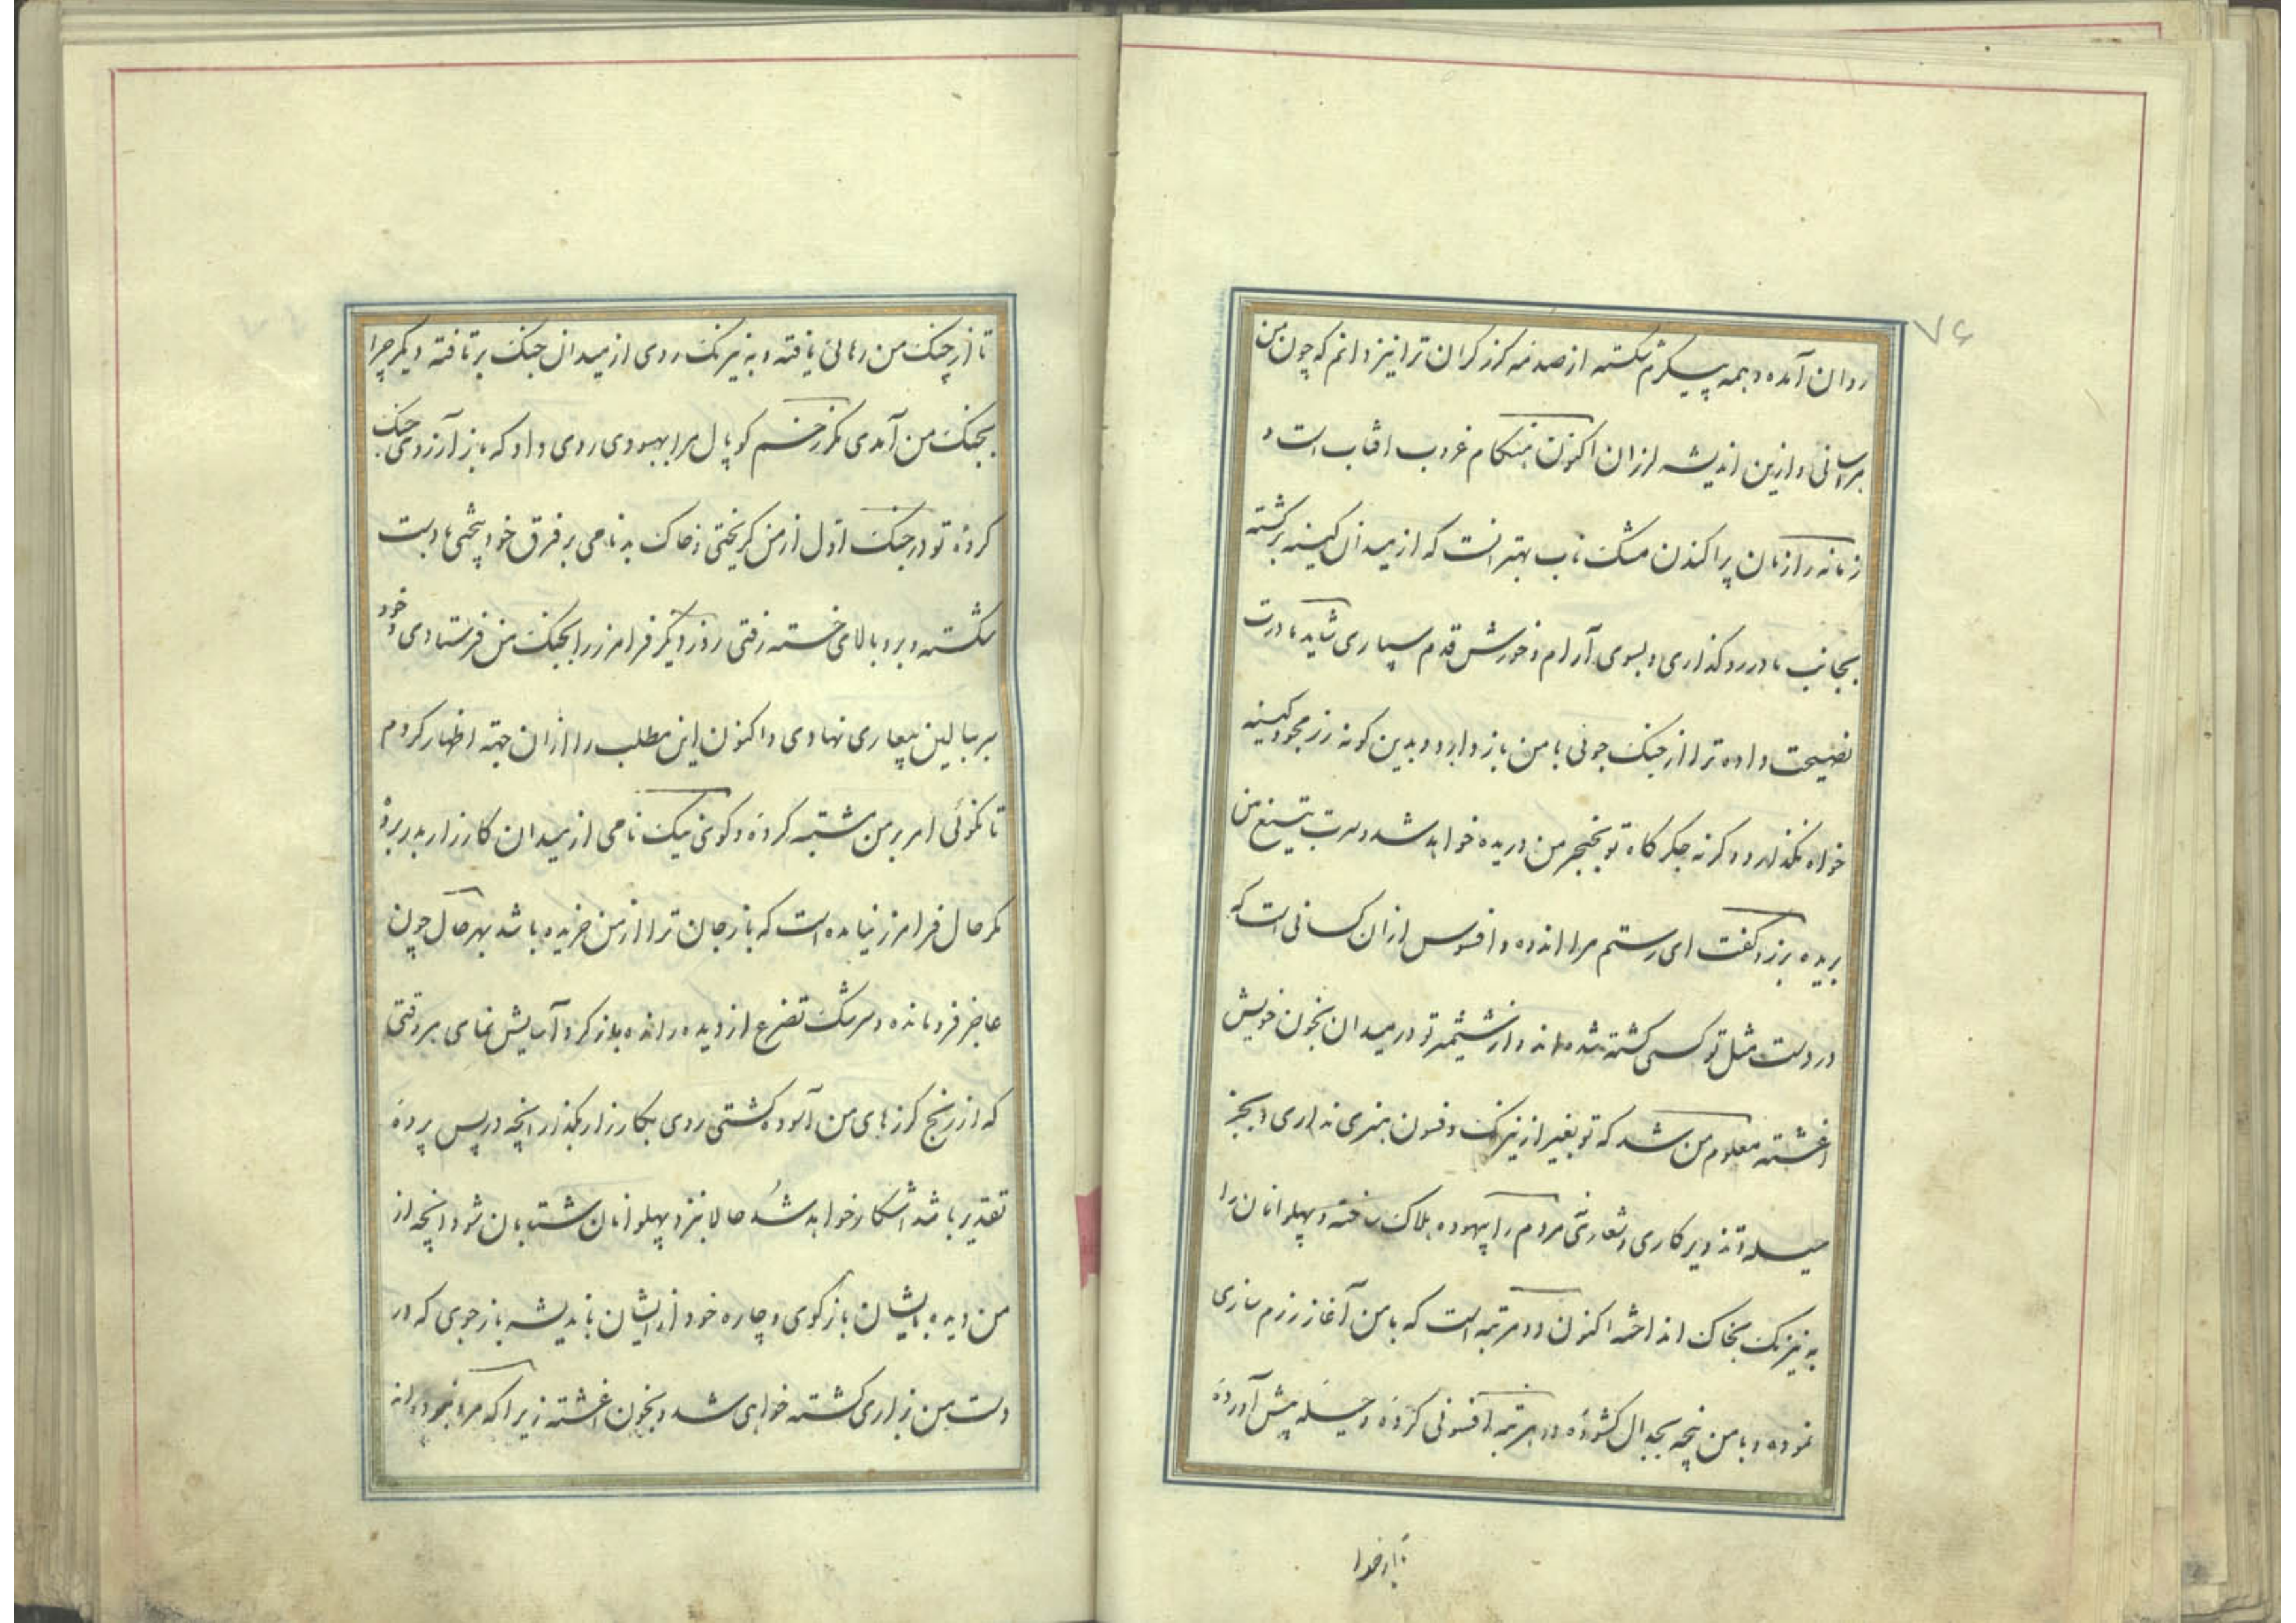 ۷۶
روان آمده و همه پیکرم شکسته از صدمه کرز کران ترا نیز دانم که چون من
هراسانی و ازین اندیشه لرزان اکنون هنکام غروب افتاب است و
زمانه را زمان پراکندن مشک ناب بهتر انست که از میدان کینه برکشته
بجانب مادر رو کذاری و بسوی آرام و خورش قدم سپاری شاید مادرت
نصیحت داده ترا از جنک جوئی با من باز دارد و بدین کونه رزمجو و کینه
خواه نکذارد و کرنه جکرکاه تو بخنجر من دریده خواهد شد و سرت بتیغ من
بریده برزو کفت ای رستم مرا اندوه و افسوس از ان کسانی است که
در دست مثل تو کسی کشته شده اند و از شمشیر تو در میدان بخون خویش
اغشته معلوم من شد که تو بغیر از نیرنک و فسون هنری نداری و بجز
حیله و تزویر کاری و شعاری مردم را بیهوده هلاک ساخته و پهلوانان را
به نیرنک بخاک انداخته اکنون دو مرتبه است که با من آغاز رزم سازی
نموده و با من پنجه بجدال کشوده در هر مرتبه افسونی کرده و حیله پیش آورده
تا از چنک من رهائی یافته و به نیرنک روی از میدان جنک برتافته دیکر چرا
بجنک من آمدی مکر زخم کوپال مرا بهبودی روی داد که باز آرزوی جنک
کرده تو در جنک اول از من کریختی و خاک بدنامی بر فرق خود پیختی با دست
شکسته و بر و بالای خسته رفتی روز دیکر فرامرز را بجنک من فرستادی و خود
سر ببالین بیماری نهادی و اکنون این مطلب را از ان جهته اظهار کردم
تا نکوئی امر بر من مشتبه کرده و کوی نیک نامی از میدان کارزار بدر برده
مکر حال فرامرز نیامده است که باز جان ترا از من خریده باشد بهر حال چون
عاجز فرومانده و سرشک تضرع از دیده رانده باز کرد و آسایش نمای هر وقتی
که از رنج کرزهای من آسوده کشتی روی بکارزار بکذار انچه در پس پرده
تقدیر باشد اشکار خواهد شد حالا بنزد پهلوانان شتابان شو و انچه از
من دیده بایشان باز کوی و چاره خود از ایشان باندیشه باز جوی که در
دست من بزاری کشته خواهی شد و بخون اغشته زیرا که مرا